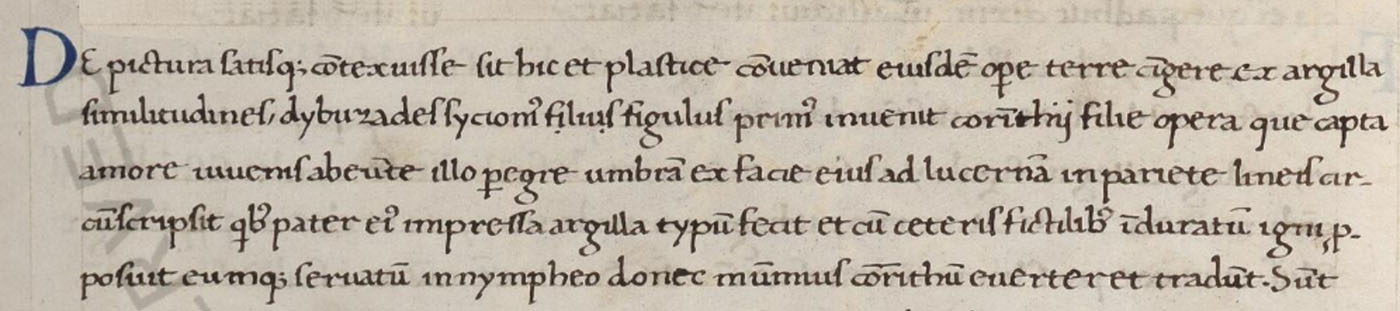 DE pictura satisq; cōtexuisse sit hic et plastice cōueniat eiusdē oꝑe terre cīgere ex argilla
similitudines, dybuzades sycioniꝰ filius figulus primꝰ inuenit corīthij filie opera que capta
amore iuuenis abeūte illo ꝑegre umbrā ex facie eius ad lucernā in pariete lineis cir-
cūscripsit qbꝰ pater eiꝰ impressa argilla typū fecit et cū ceteris fictilibꝰ īduratū igni ꝓ-
posuit eumq; seruatū in nympheo donec mūmius corīthū euerteret tradūt. Sūt